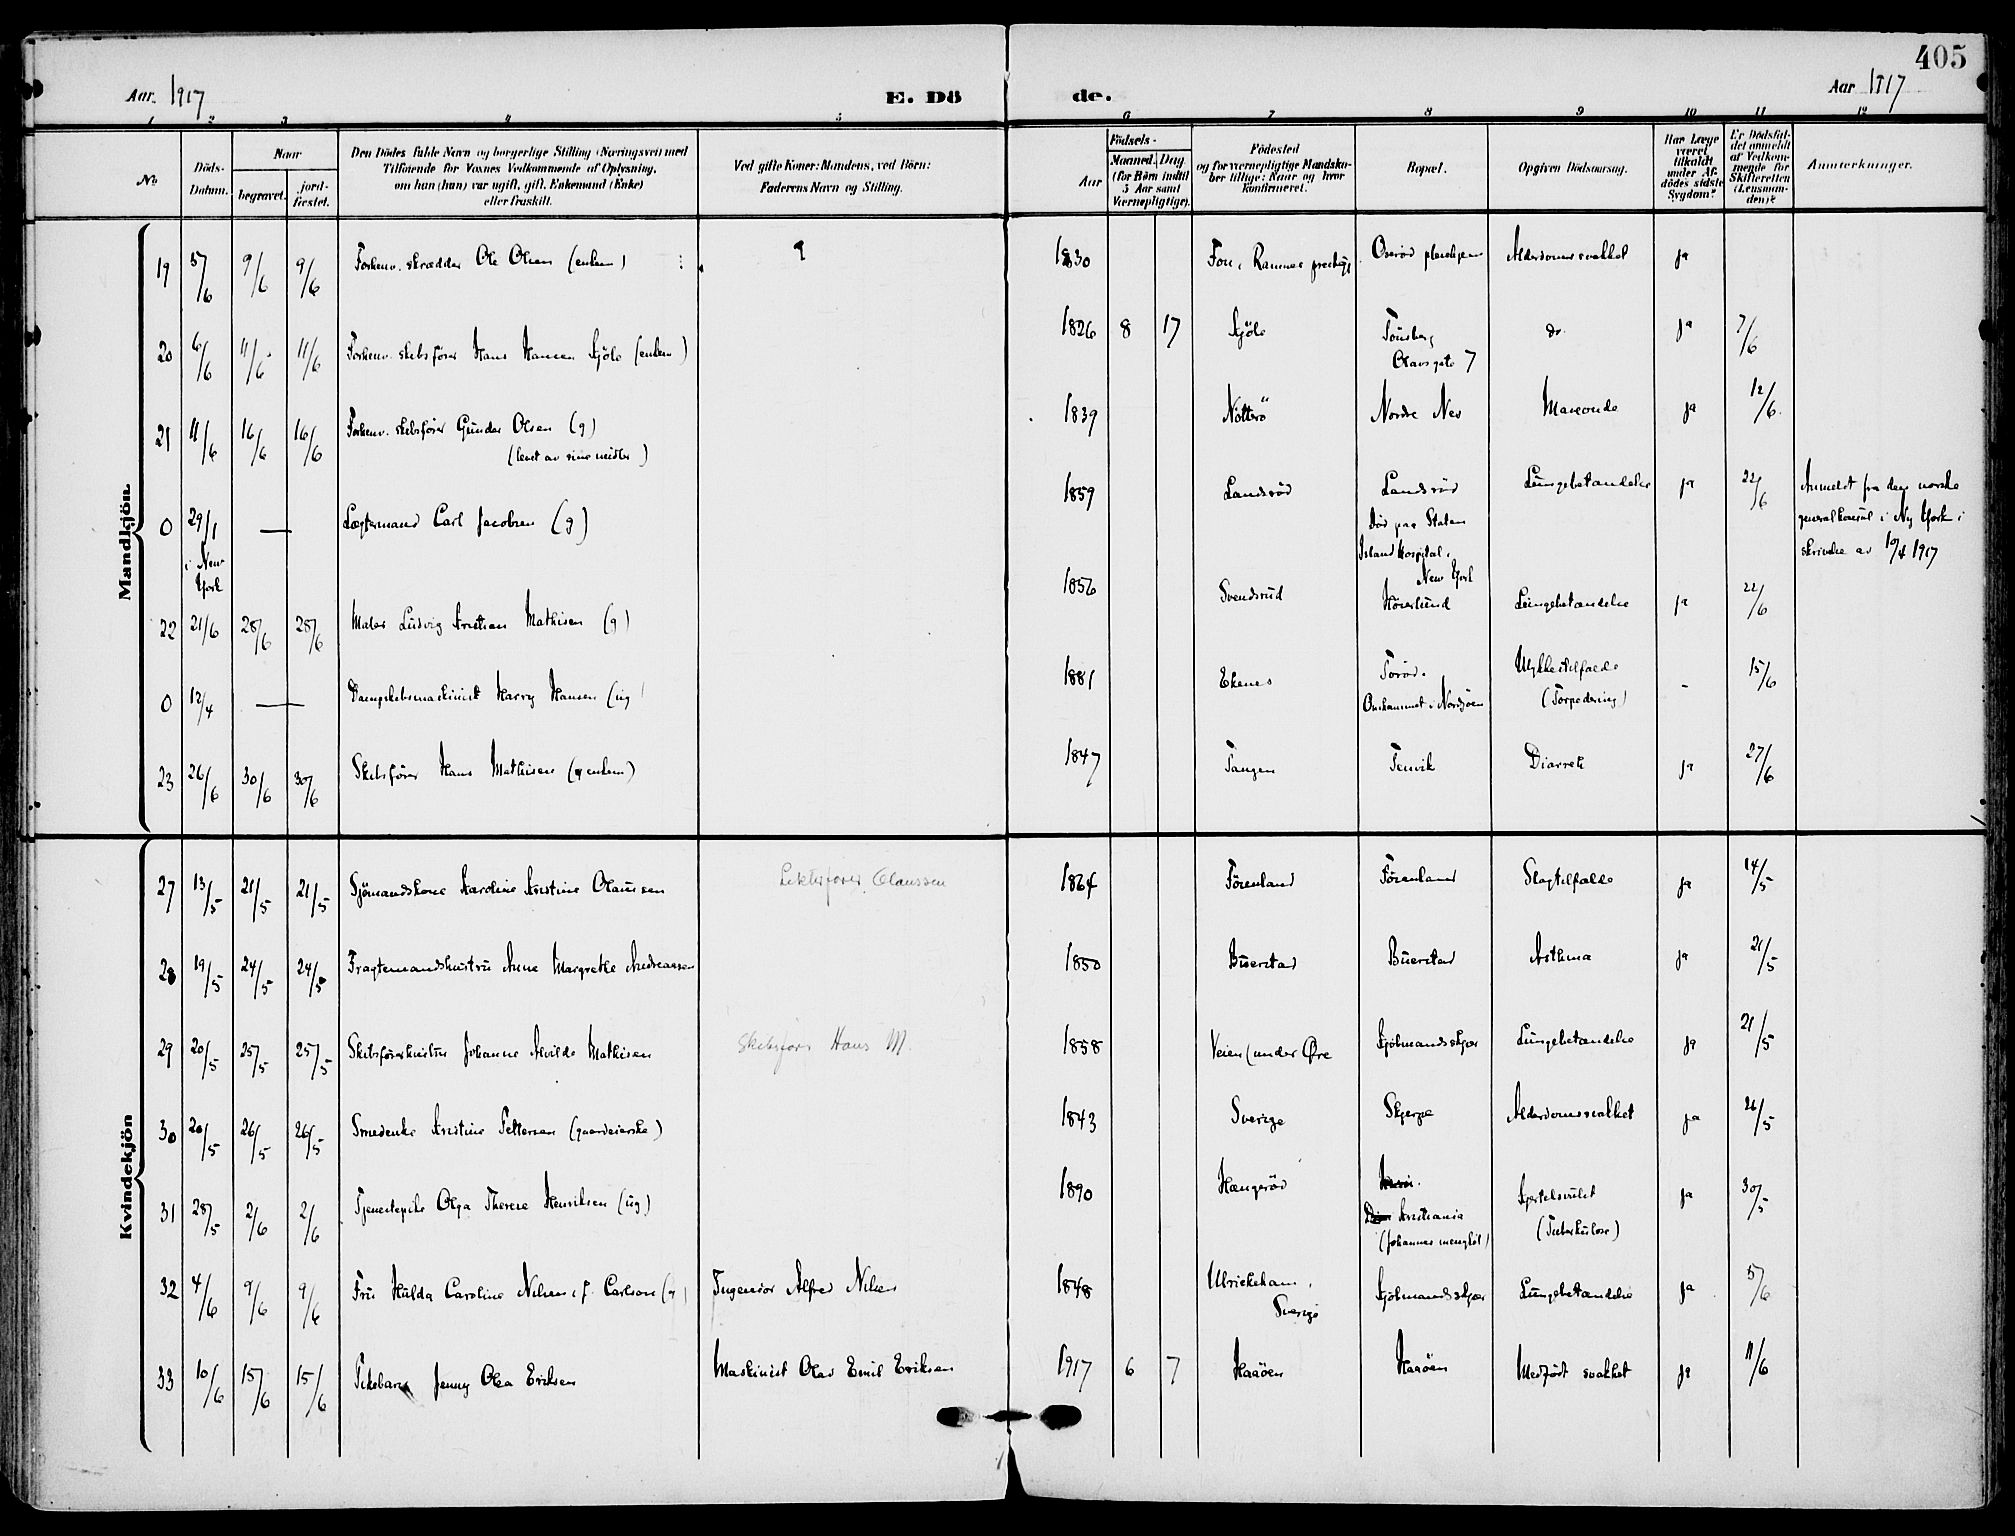 405
Aar 1917
E. Dö
de.
Aar 1917
1 2 3 4 5 6 7 8 9 10 11 12
No
Döds-
Datum.
Naar
begravet.
jord-
fæstet.
Den Dödes fulde Navn og borgerlige Stilling (Næringsvei) med
Tilföiende for Voxnes Vedkommende af Oplysning,
om han (hun) var ugift, gift, Enkemand (Enke)
eller fraskilt.
Ved gifte Koner: Mandens, ved Börn:
Faderens Navn og Stilling.
Födsels-
Aar
Maaned. Dag
(for Börn indtil
5 Aar samt
Værnepligtige).
Födested
og for værnepligtige Mandska-
ber tillige: Naar og hvor
konfirmeret.
Bopæl.
Opgiven Dödsaarsag.
Har Læge
været
tilkaldt
under Af-
dödes sidste
Sygdom?
Er Dödsfal-
det anmeldt
af Vedkom-
mende for
Skifteretten
(Lensman-
den)?
Anmerkninger.
Mandkjön.
19 5/6 9/6 9/6 Forhenv. skrædder Ole Olsen (enkem) 1830 Aldersdomssvakhet ja
20 6/6 11/6 11/6 Forhenv. skibsfører Hans Hansen Kjøle (enkem) 1826 8 17 Kjøle Tønsberg
Olavsgate 7 do. ja 7/6
21 11/6 16/6 16/6 Forhenv. skibsfører Gunder Olsen (g)
(levet av sine midler) 1839 Nøtterø Nordre Nes ja 12/6
0 29/1
i New
York — Lægtermand Carl Jacobsen (g) 1859 Landsrød Landsrød
Død paa Staten
Island Hospital i
New York Lungebetændelse ja 22/6 Anmeldt fra den norske
generalkonsul i Ny York i
skrivelse av 10/4 1917
22 21/6 28/6 28/6 Maler Ludvig Kristian Mathisen (g) 1856 Svendsrud Lungebetændelse ja 22/6
0 12/4 — Dampskibsmaskinist Harry Hansen (ug) 1881 Ekenes Torød.
Omkommet i Nordsjøen Ulykkestilfælde
(Torpedering) - 15/6
23 26/6 30/6 30/6 Skibsfører Hans Mathisen (enkem) 1847 Tangen Tenvik Diarreh ja 27/6
Kvindekjön
27 13/5 21/5 21/5 Sjömandskone Karoline Kristine Olaussen Lekterfører Olaussen 1864 Førenland Førenland Slagtilfælde ja 14/5
28 19/5 24/5 24/5 Fragtemandshustru Anne Margrethe Andreassen 1850 Buerstad Buerstad Asthma ja 21/5
29 20/5 25/5 25/5 Skibsførerhustru Johanne Alvilde Mathisen Skibsfører Hans M. 1858 Veien (under Øre Kjøbmandskjær Lungebetændelse ja 21/5
30 20/5 26/5 26/5 Smedenke Kristine Pettersen (gaardeierske) 1843 Sverige Skjerpe Alderdomssvakhet ja 26/5
31 28/5 2/6 2/6 Tjenestepike Olga Therese Henriksen (ug) 1890 Hængsrød
Kristiania Kjertelsvulst
(Tuberkulose) ja 30/5
32 4/6 9/6 9/6 Fru Hulda Caroline Nilsen, f. Carlson (g) Ingeniør Alfred Nilsen 1848 Ulrickeham,
Sverige Kjøbmandskjær Lungebetændelse ja 5/6
33 10/6 15/6 15/6 Pikebarn Jenny Olea Eriksen Maskinist Olav Emil Eriksen 1917 6 7 Haaøen Haaøen Medfødt svakhet ja 11/6